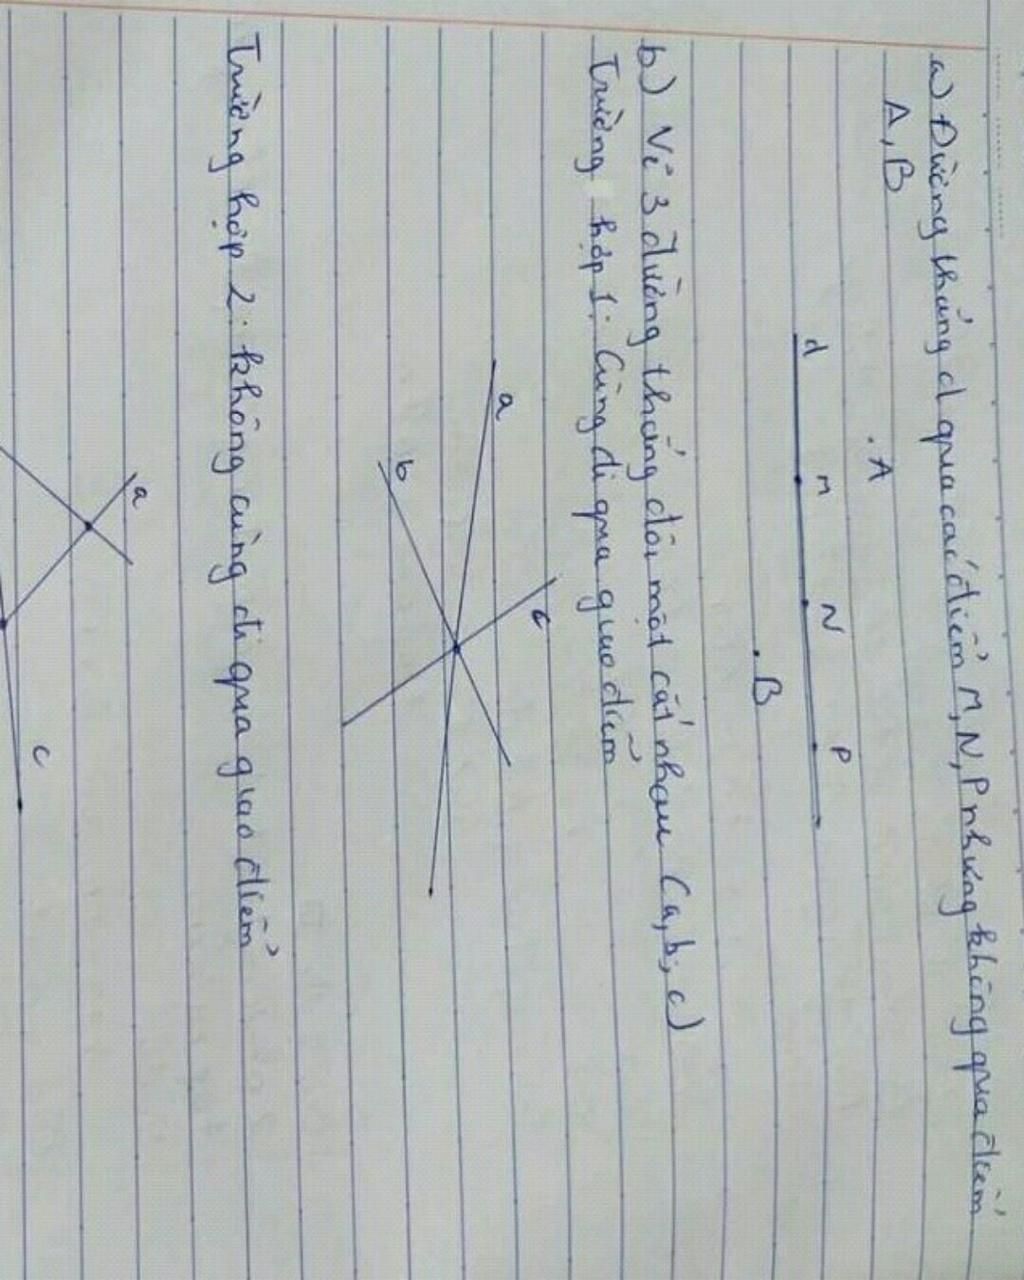 a) Đường thẳng d qua các điểm M, N, P nhưng không qua điểm
A, B
. A
d M N P
. B
b) Vẽ 3 đường thẳng đôi một cắt nhau (a, b, c)
Trường hợp 1: Cùng đi qua giao điểm
a
c
b
Trường hợp 2: không cùng đi qua giao điểm
a
c